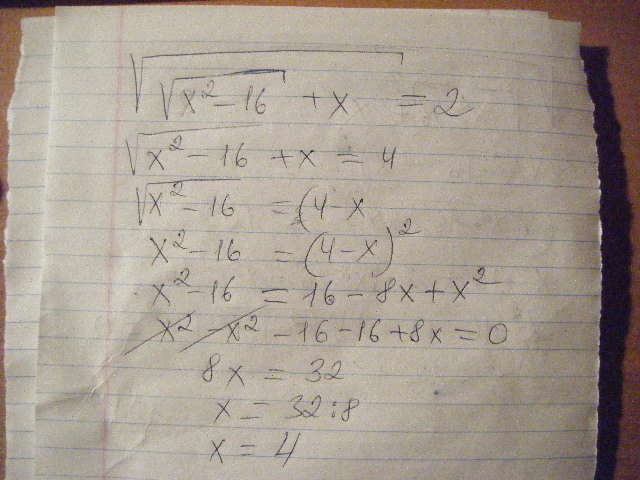 √(√(x²-16) + x) = 2
√(x²-16) + x = 4
√(x²-16) = (4-x
x²-16 = (4-x)²
x²-16 = 16-8x+x²
x²-x²-16-16+8x=0
8x = 32
x = 32:8
x = 4